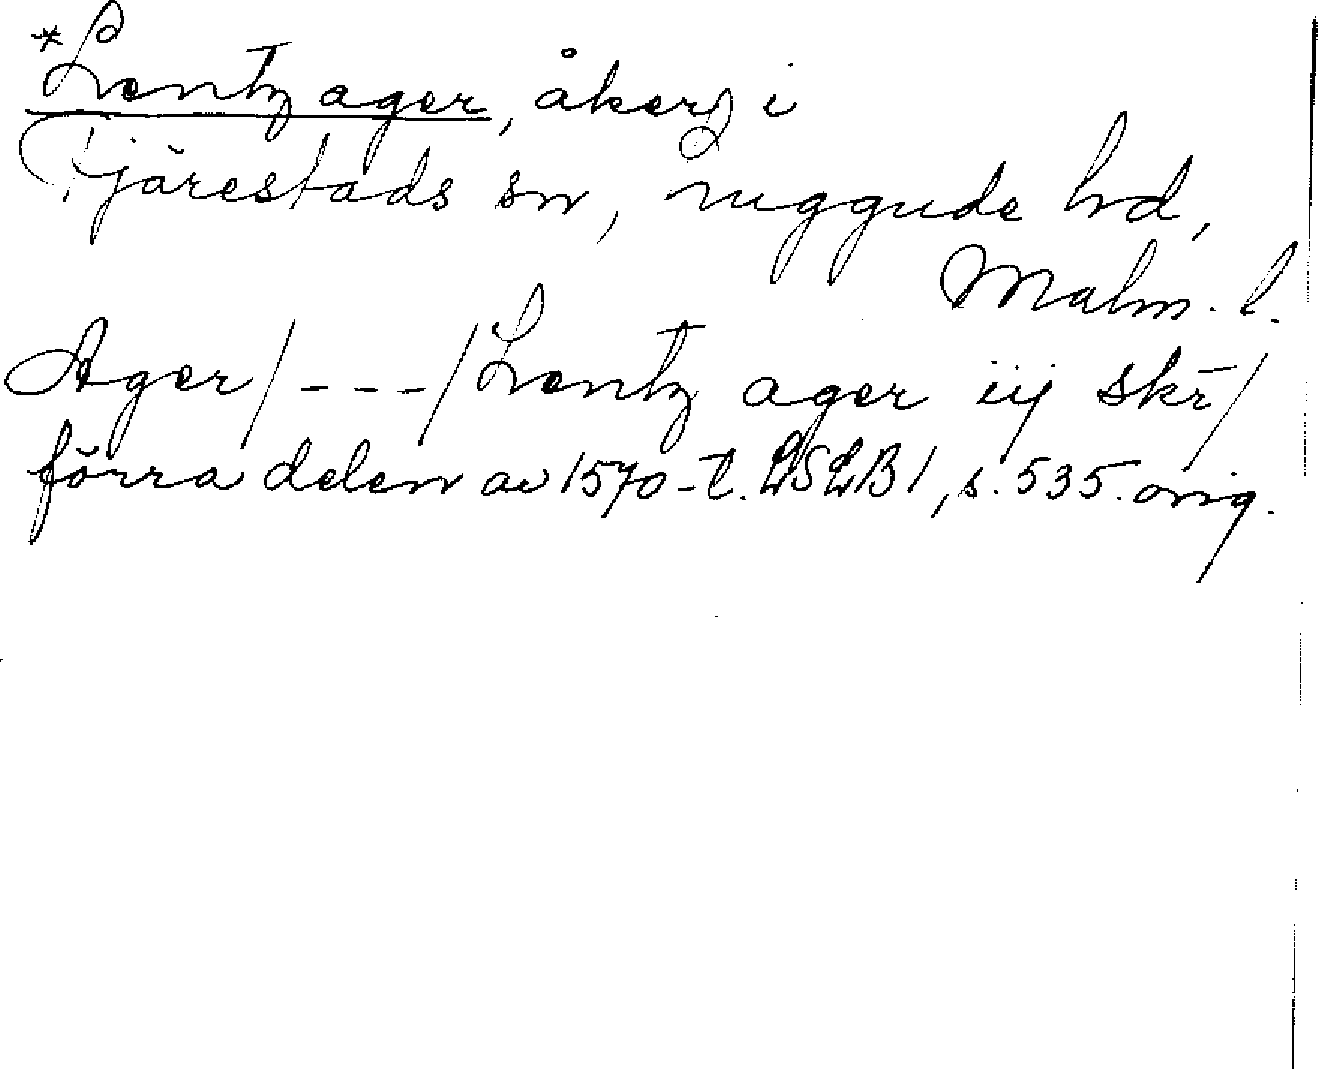 *Lentz ager, åkerj i
Fjärestads sn, Luggude hd,
Malm. l.
Ager/---/Lentz ager iij skr̄/
förra delen av 1570-t. LSLB1, s. 535. orig.